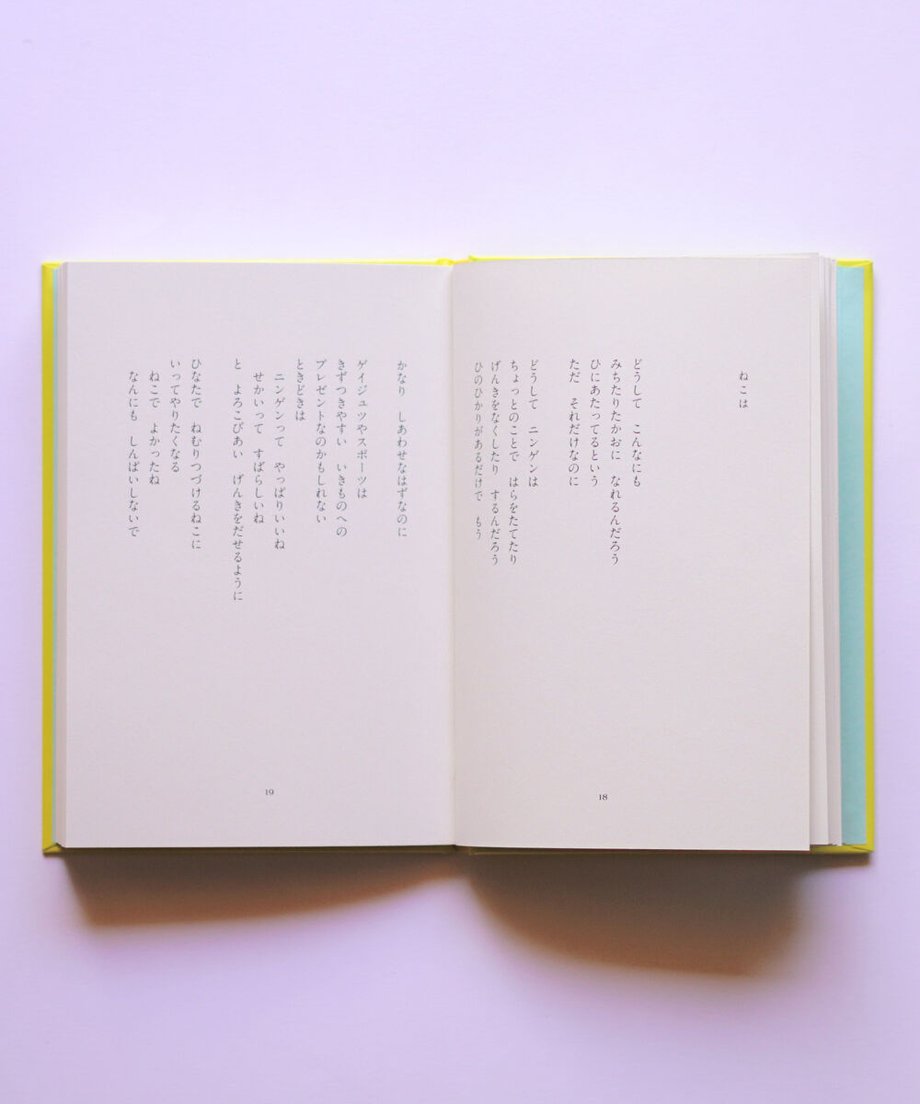 ねこは
どうして　こんなにも
みちたりたかおに　なれるんだろう
ひにあたってるという
ただ　それだけなのに
どうして　ニンゲンは
ちょっとのことで　はらをたてたり
げんきをなくしたり　するんだろう
ひのひかりがあるだけで　もう
18
かなり　しあわせなはずなのに
ゲイジュツやスポーツは
きずつきやすい　いきものへの
プレゼントなのかもしれない
ときどきは
ニンゲンって　やっぱりいいね
せかいって　すばらしいね
と　よろこびあい　げんきをだせるように
ひなたで　ねむりつづけるねこに
いってやりたくなる
ねこで　よかったね
なんにも　しんぱいしないで
19